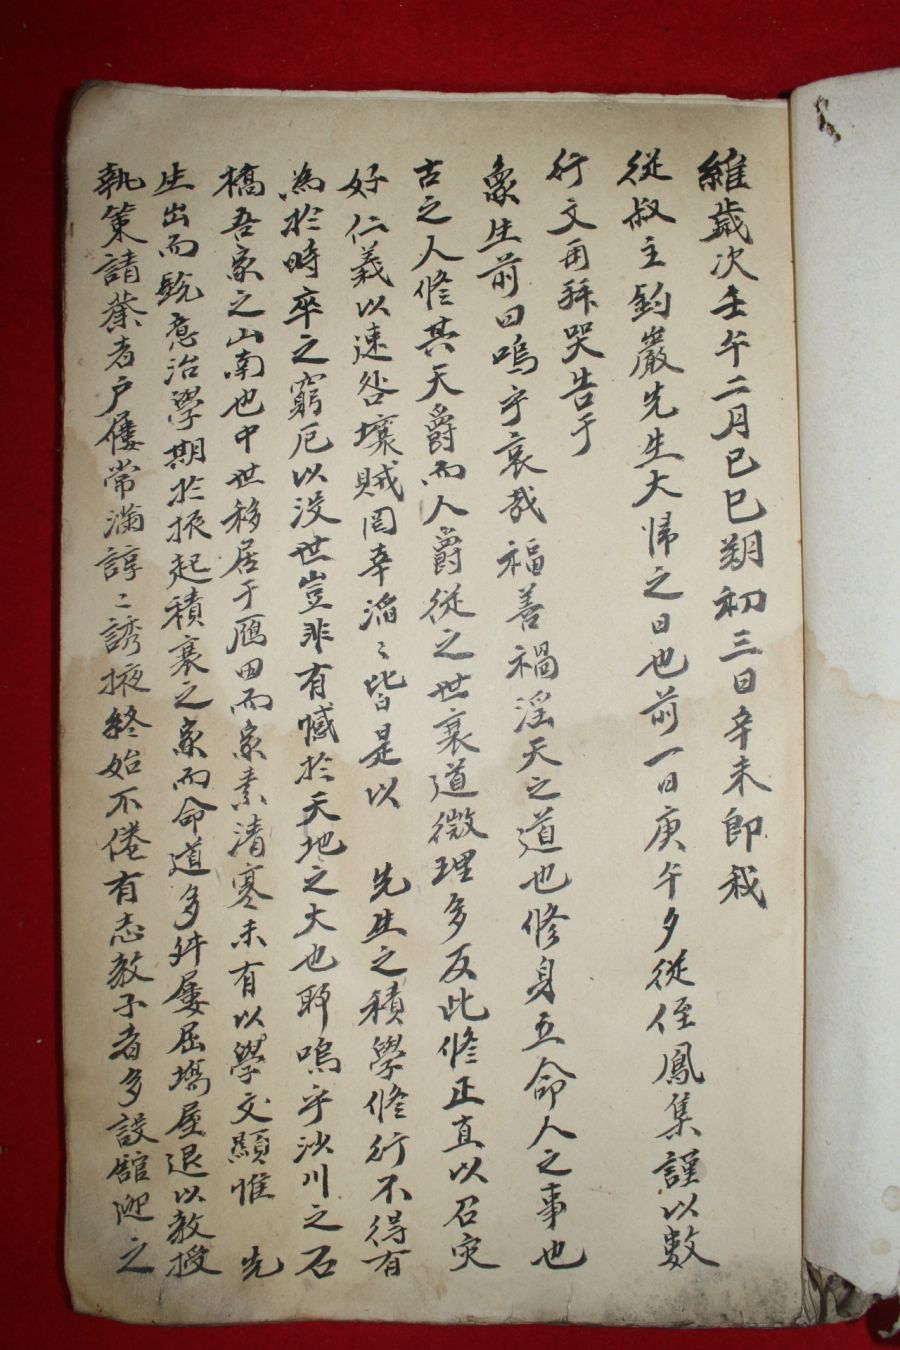 維歲次壬午二月己巳朔初三日辛未即我
從叔主釣巖先生大歸之日也前一日庚午夕從侄鳳集謹以數
行文再拜哭告于
象生前曰嗚乎哀哉福善禍淫天之道也修身立命人之事也
古之人修其天爵而人爵從之世衰道微理多反此修正直以召灾
好仁義以速咎壤賊罔幸滔〻皆是以 先生之積學修行不得有
為於時卒之窮厄以沒世豈非有憾於天地之大也耶嗚乎沙川之石
橋吾家之山南也中世移居于鴈田而家素清寒未有以學文顯惟 先
生出而銳意治學期於振起積衰之家而命道多舛屢屈塲屋退以教授
執策請業者戶屨常滿諄〻誘掖終始不倦有志教子者多設舘迎之